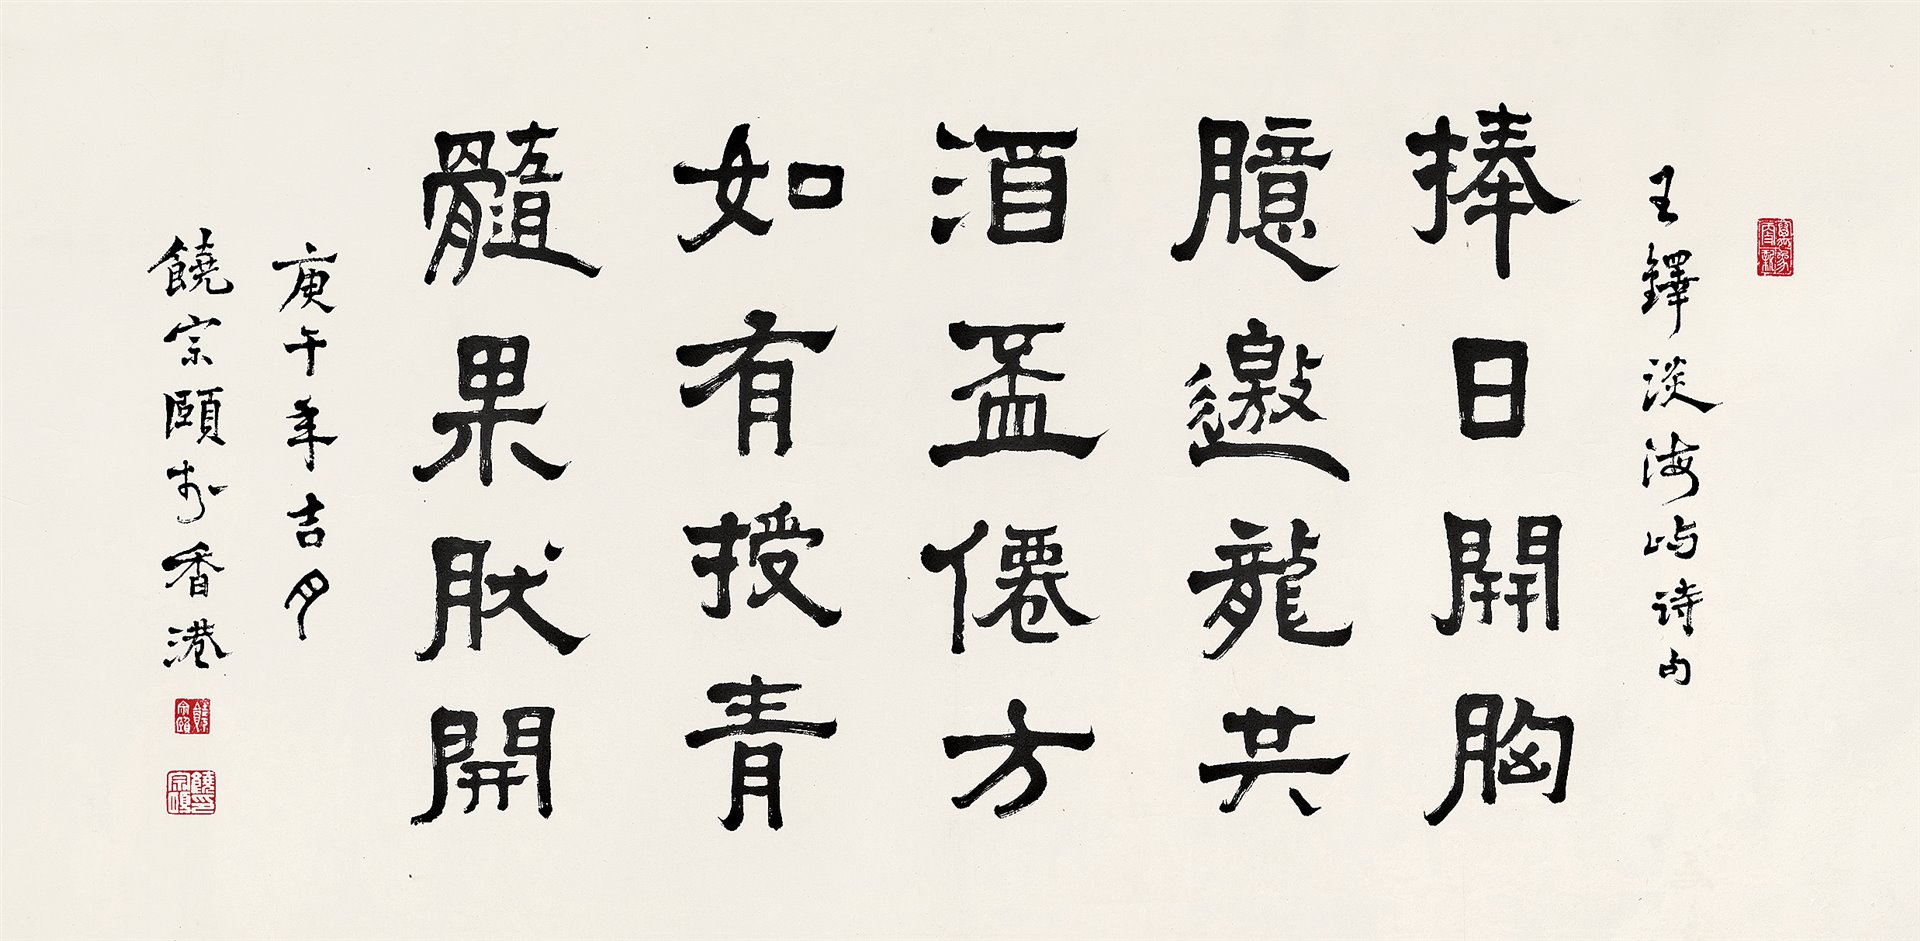 王鐸淡海屿诗句
捧日開胸
臆邀龍共
酒盃僊方
如有授青
髓果肰開
庚午年吉月
饒宗頤於香港